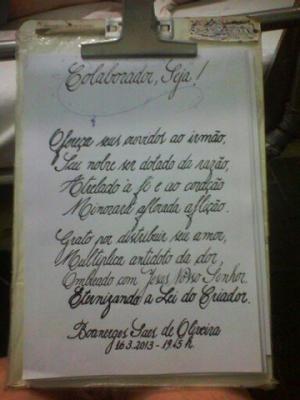 Colaborador, Seja!
Ofereça seus ouvidos ao irmão,
Seu nobre ser dotado da razão,
Atrelado à fé e ao coração
Minorará aflorada aflição.
Grato por distribuir seu amor,
Multiplica antídoto da dor,
Ombreado com Jesus Nosso Senhor.
Eternizando a Lei do Criador.
Boanerges Saes de Oliveira
16.3.2013 - 19:45 h.